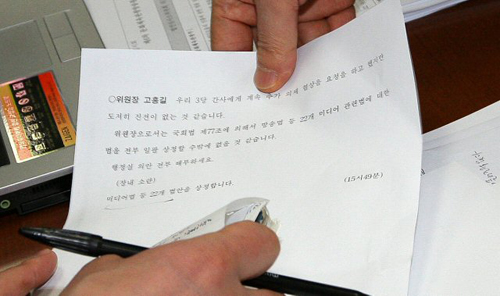 ○위원장 고흥길 우리 3당 간사에게 계속 추가 의제 협상을 요청을 하고 했지만
도저히 진전이 없는 것 같습니다.
위원장으로서는 국회법 제77조에 의해서 방송법 등 22개 미디어 관련법에 대한
법을 전부 일괄 상정할 수밖에 없을 것 같습니다.
행정실 의안 전부 배부하세요.
(장내 소란)
미디어법 등 22개 법안을 상정합니다.
(15시49분)